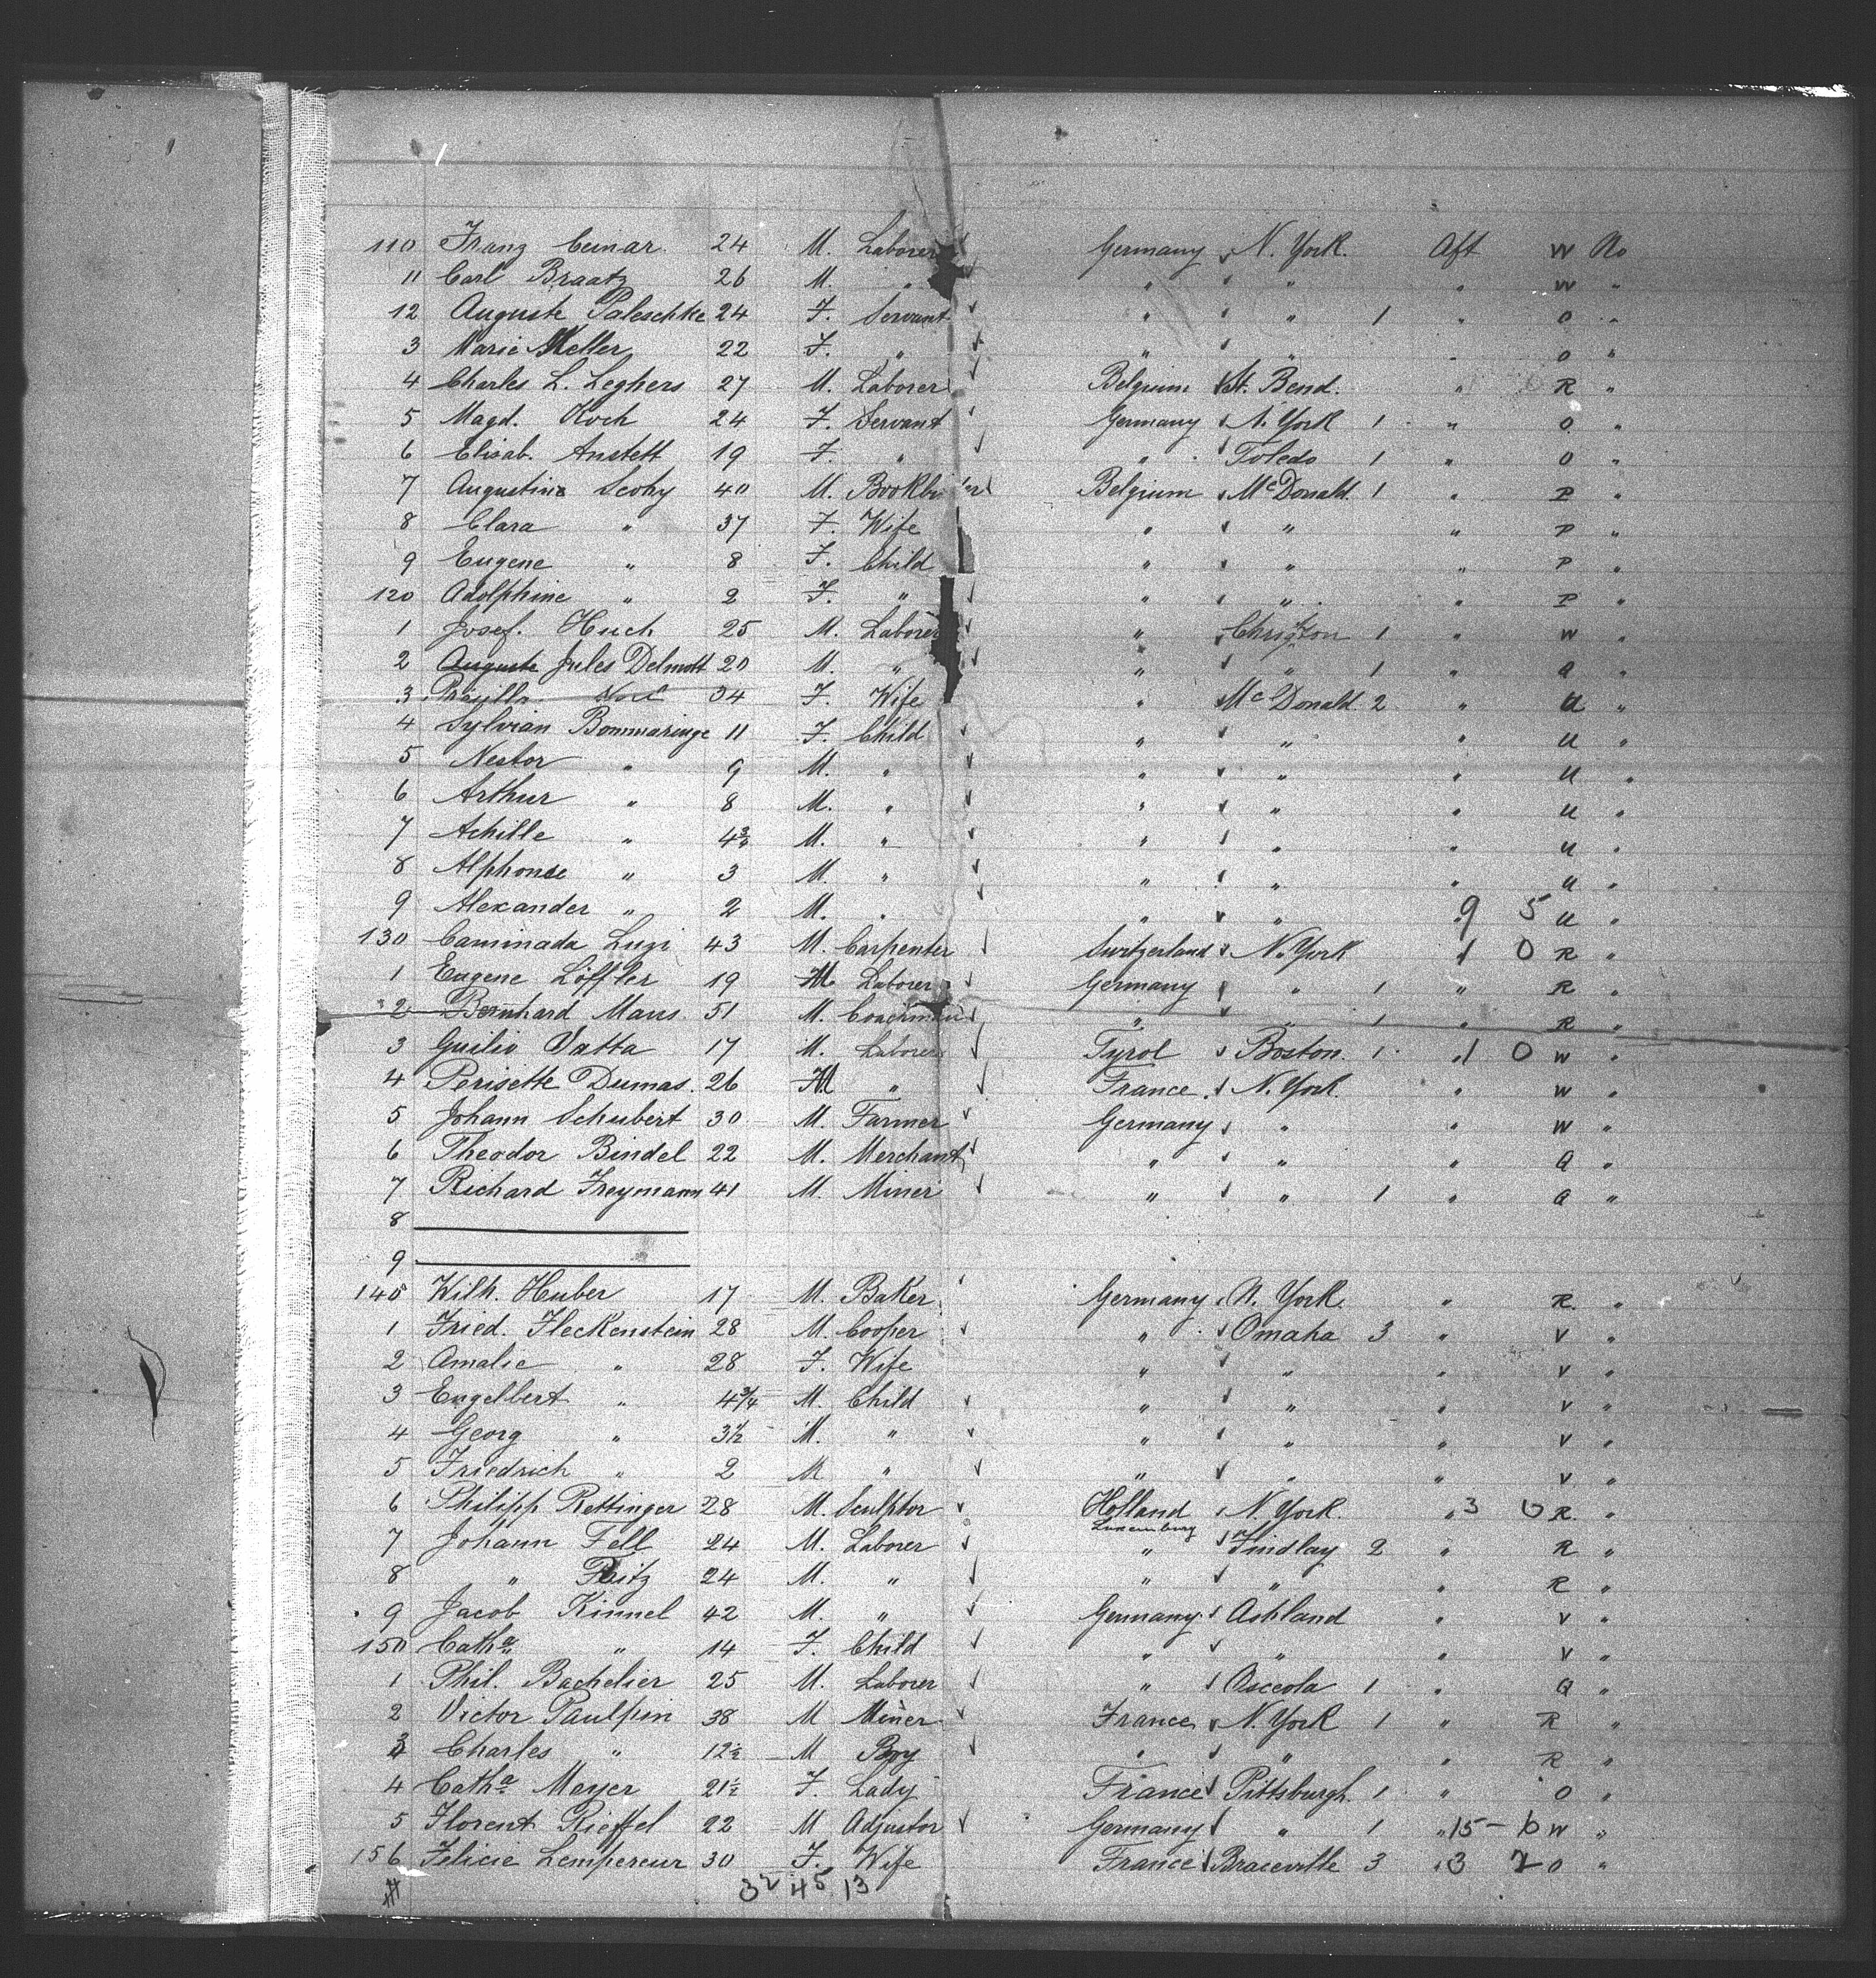 110 Franz Ceinar. 24 M. Laborer Germany N. York. Aft W No
11 Carl Braatz 26 M. " " " " W "
12 Auguste Paleschke 24 F. Servant " " 1 " O "
3 Marie Keller 22 F. " " " " O "
4 Charles L. Leghers 27 M. Laborer Belgium St. Bend. " R "
5 Magd. Koch 24 F. Servant Germany N. York 1 " O. "
6 Elisab. Anstett 19 F. " " Toledo 1 " O "
7 Augustine Scohy 40 M. Belgium McDonald. 1 " P "
8 Clara " 37 F. Wife " " " P "
9 Eugene " 8 F. Child " " " P "
120 Adolphine " 2 F. " " " " P "
1 Josef. Huch 25 M. Laborer " 1 " W "
2 Auguste Jules Delmott 20 M. " " " 1 " a "
3 34 F. Wife " McDonald. 2 " U "
4 Sylvian Bommaringe 11 F. Child " " " U "
5 Nestor " 9 M. " " " " U "
6 Arthur " 8 M. " " " " U "
7 Achille " 4¾ M. " " " " U "
8 Alphonse " 3 M. " " " " U "
9 Alexander " 2 M. " " " " 9 5 U "
130 Caminada Luzi 43 M. Carpenter Switzerland N. York 1 0 R "
1 Eugene Löffler 19 M Laborer Germany " 1 " R "
2 Bernhard Maus. 51 M. Coachman " " 1 " R "
3 Guilio Vatta 17 M. Laborer Tyrol Boston. 1 " 1 0 W "
4 Perisette Dumas. 26 M " France. N. York. " W "
5 Johann Schubert 30 M. Farmer Germany " " W "
6 Theodor Bindel 22 M. Merchant " " " Q "
7 Richard Freymann 41 M. Miner " " 1 " Q "
8
9
140 Wilh. Huber 17 M. Baker Germany N. York. " R. "
1 Fried. Fleckenstein 28 M. Cooper " Omaha 3 " V "
2 Amalie " 28 F. Wife " " " V "
3 Engelbert " 4¾ M. Child " " " V "
4 Georg " 3½ M. " " " " V "
5 Friedrich " 2 M " " " " V "
6 Philipp Rettinger 28 M. Sculptor Holland N. York. " 3 0 R. "
Luxemburg
7 Johann Fell 24 M. Laborer " Findlay 2 " R "
8 " Reitz 24 M. " " " " R "
9 Jacob Kinnel 42 M. " Germany. Ashland " V "
150 Catha " 14 F. Child " " " V "
1 Phil. Bachelier 25 M. Laborer " Osceola 1 " Q "
2 Victor Paulpin 38 M Miner France N. York 1 " R "
3 Charles " 12½ M Boy " " " R "
4 Catha Mayer 21½ F. Lady France Pittsburgh. 1 " O "
5 Florent Rieffel 22 M Adjustor Germany " 1 " 15 - 6 W "
156 Felicie Lempereur 30 F. Wife France Braceville 3 " 3 2 O "
32 45 13